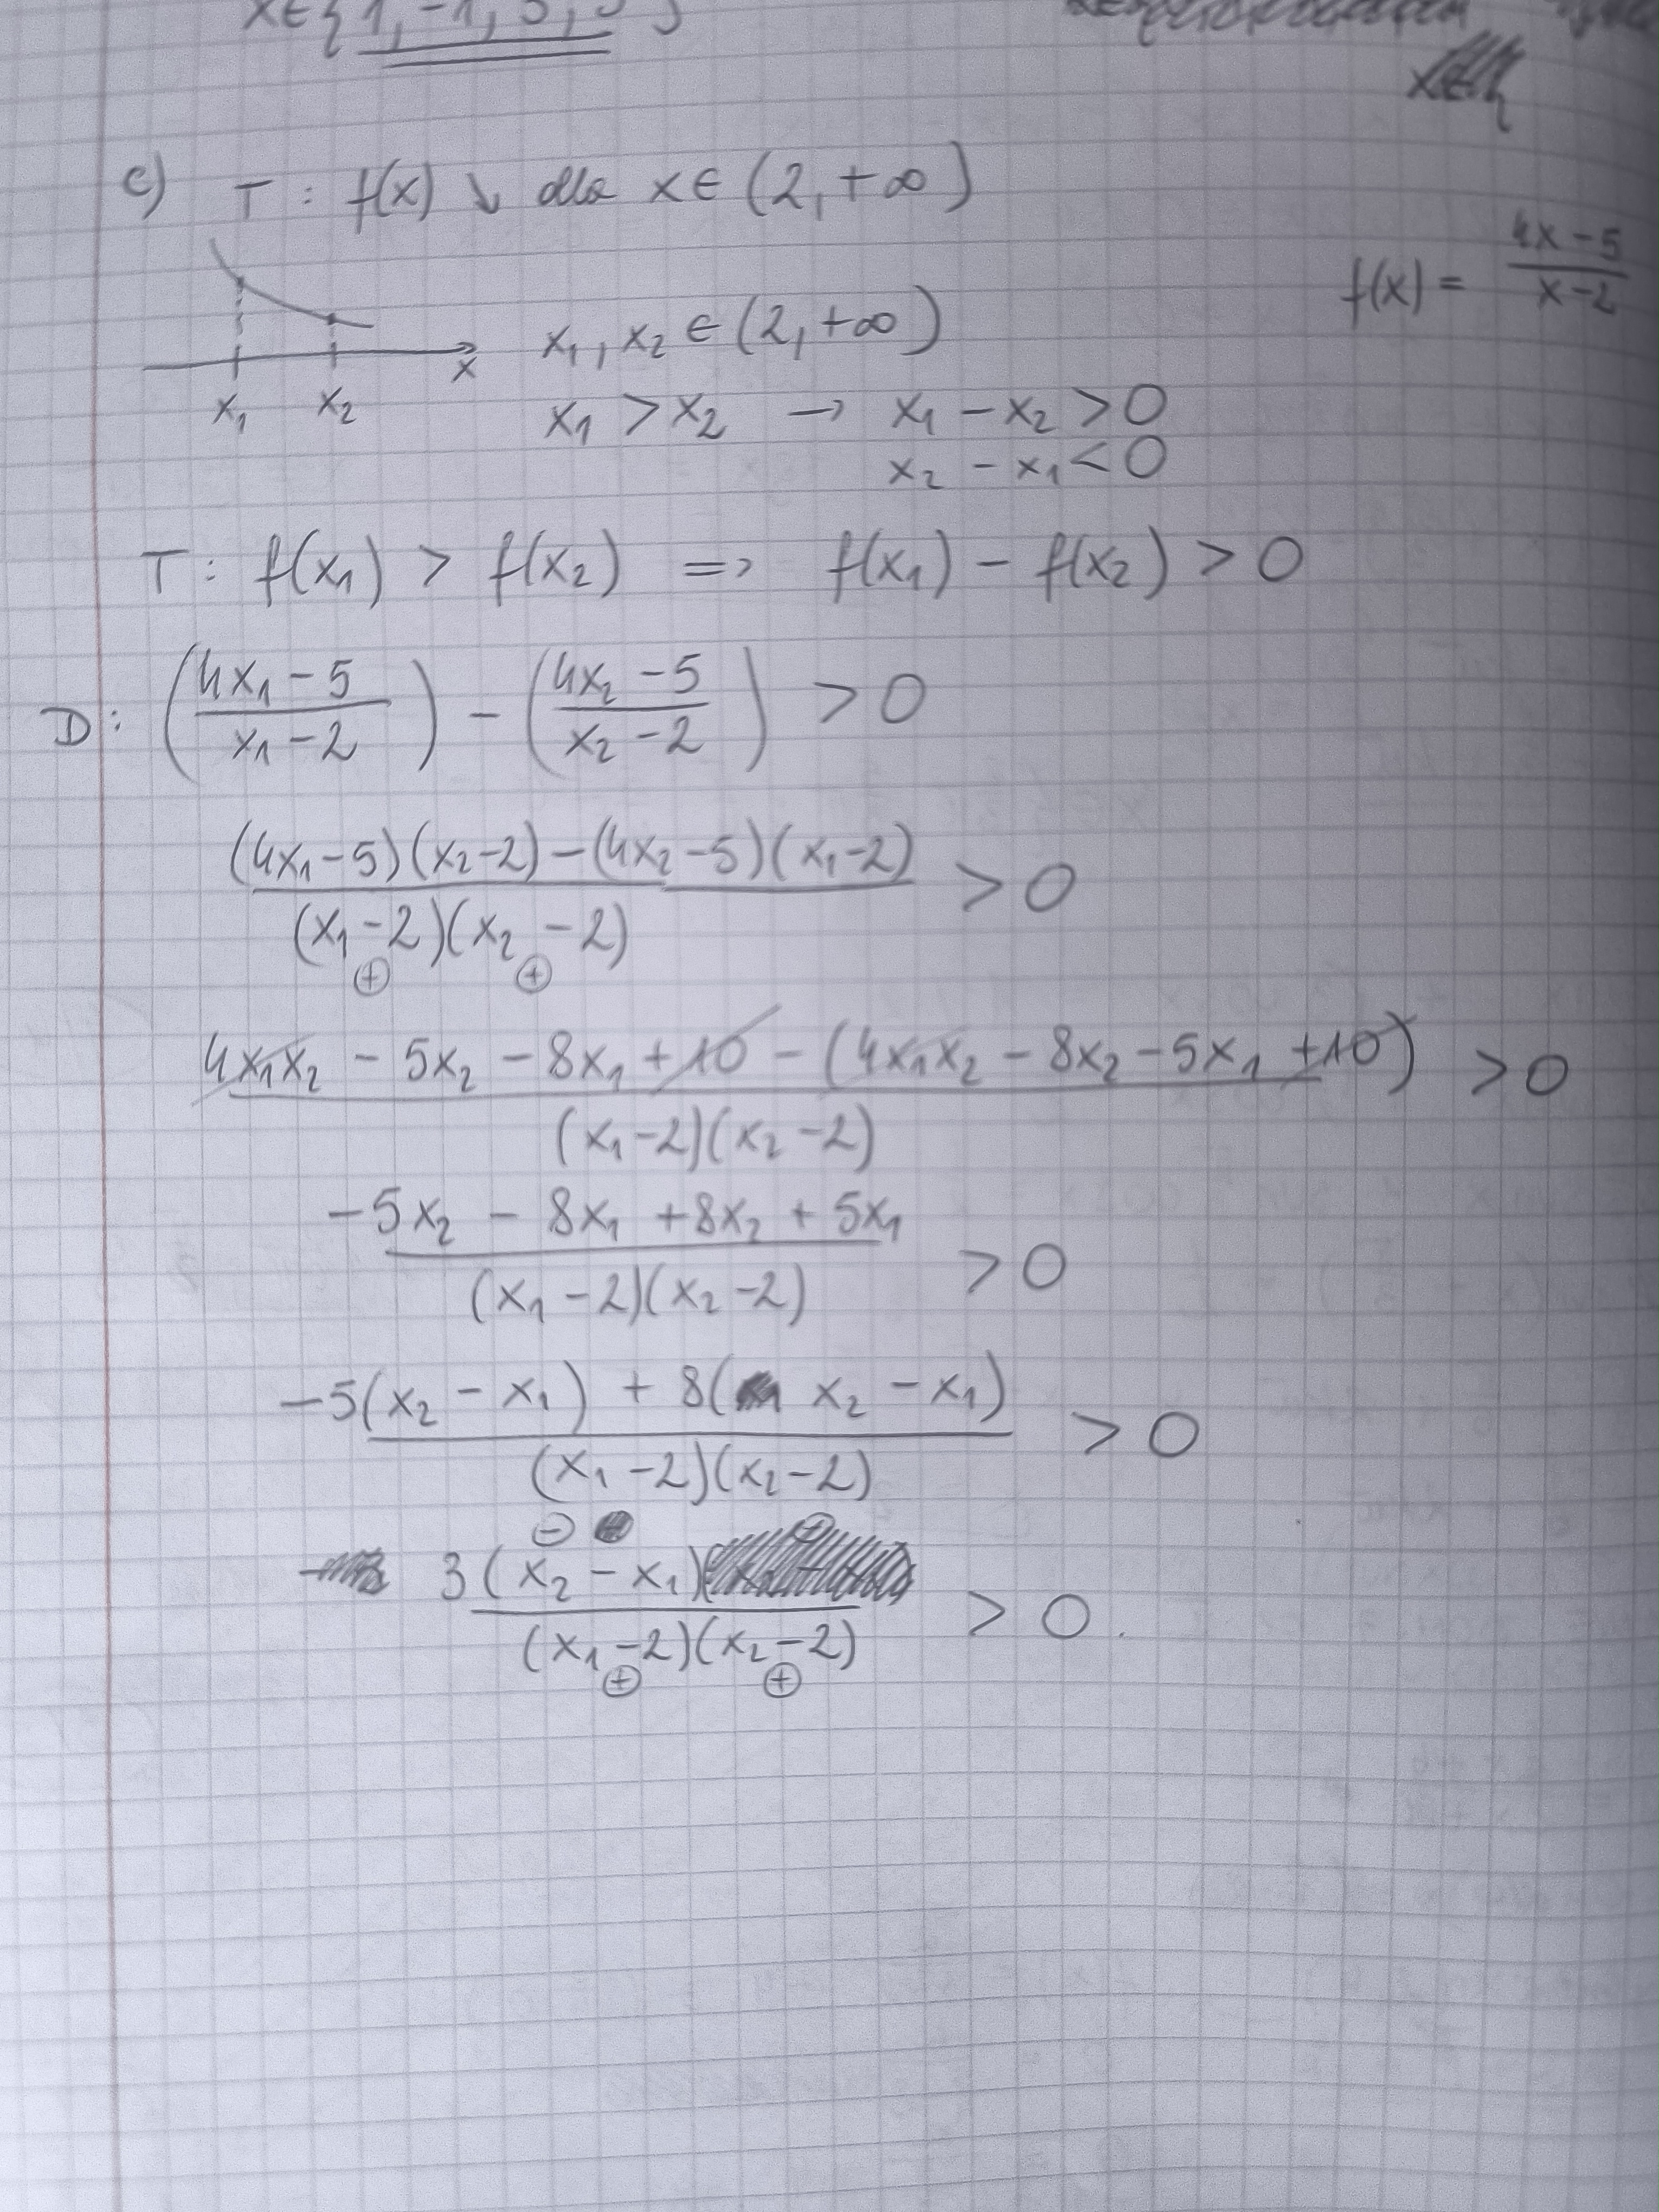 x∈{1,-1,3,
c) T: f(x) ↘ dla x∈(2,+∞)
f(x) = (4x-5)/(x-2)
x
x₁ x₂
x₁, x₂ ∈ (2,+∞)
x₁ > x₂ → x₁ - x₂ > 0
x₂ - x₁ < 0
T: f(x₁) > f(x₂) => f(x₁) - f(x₂) > 0
D: ((4x₁-5)/(x₁-2)) - ((4x₂-5)/(x₂-2)) > 0
((4x₁-5)(x₂-2)-(4x₂-5)(x₁-2))/((x₁-2)(x₂-2)) > 0
⊕ ⊕
(4x₁x₂ - 5x₂ - 8x₁ + 10 - (4x₁x₂ - 8x₂ - 5x₁ + 10))/((x₁-2)(x₂-2)) > 0
(-5x₂ - 8x₁ + 8x₂ + 5x₁)/((x₁-2)(x₂-2)) > 0
(-5(x₂ - x₁) + 8(x₂ - x₁))/((x₁-2)(x₂-2)) > 0
⊖ ⊕
3(x₂ - x₁)/((x₁-2)(x₂-2)) > 0.
⊕ ⊕